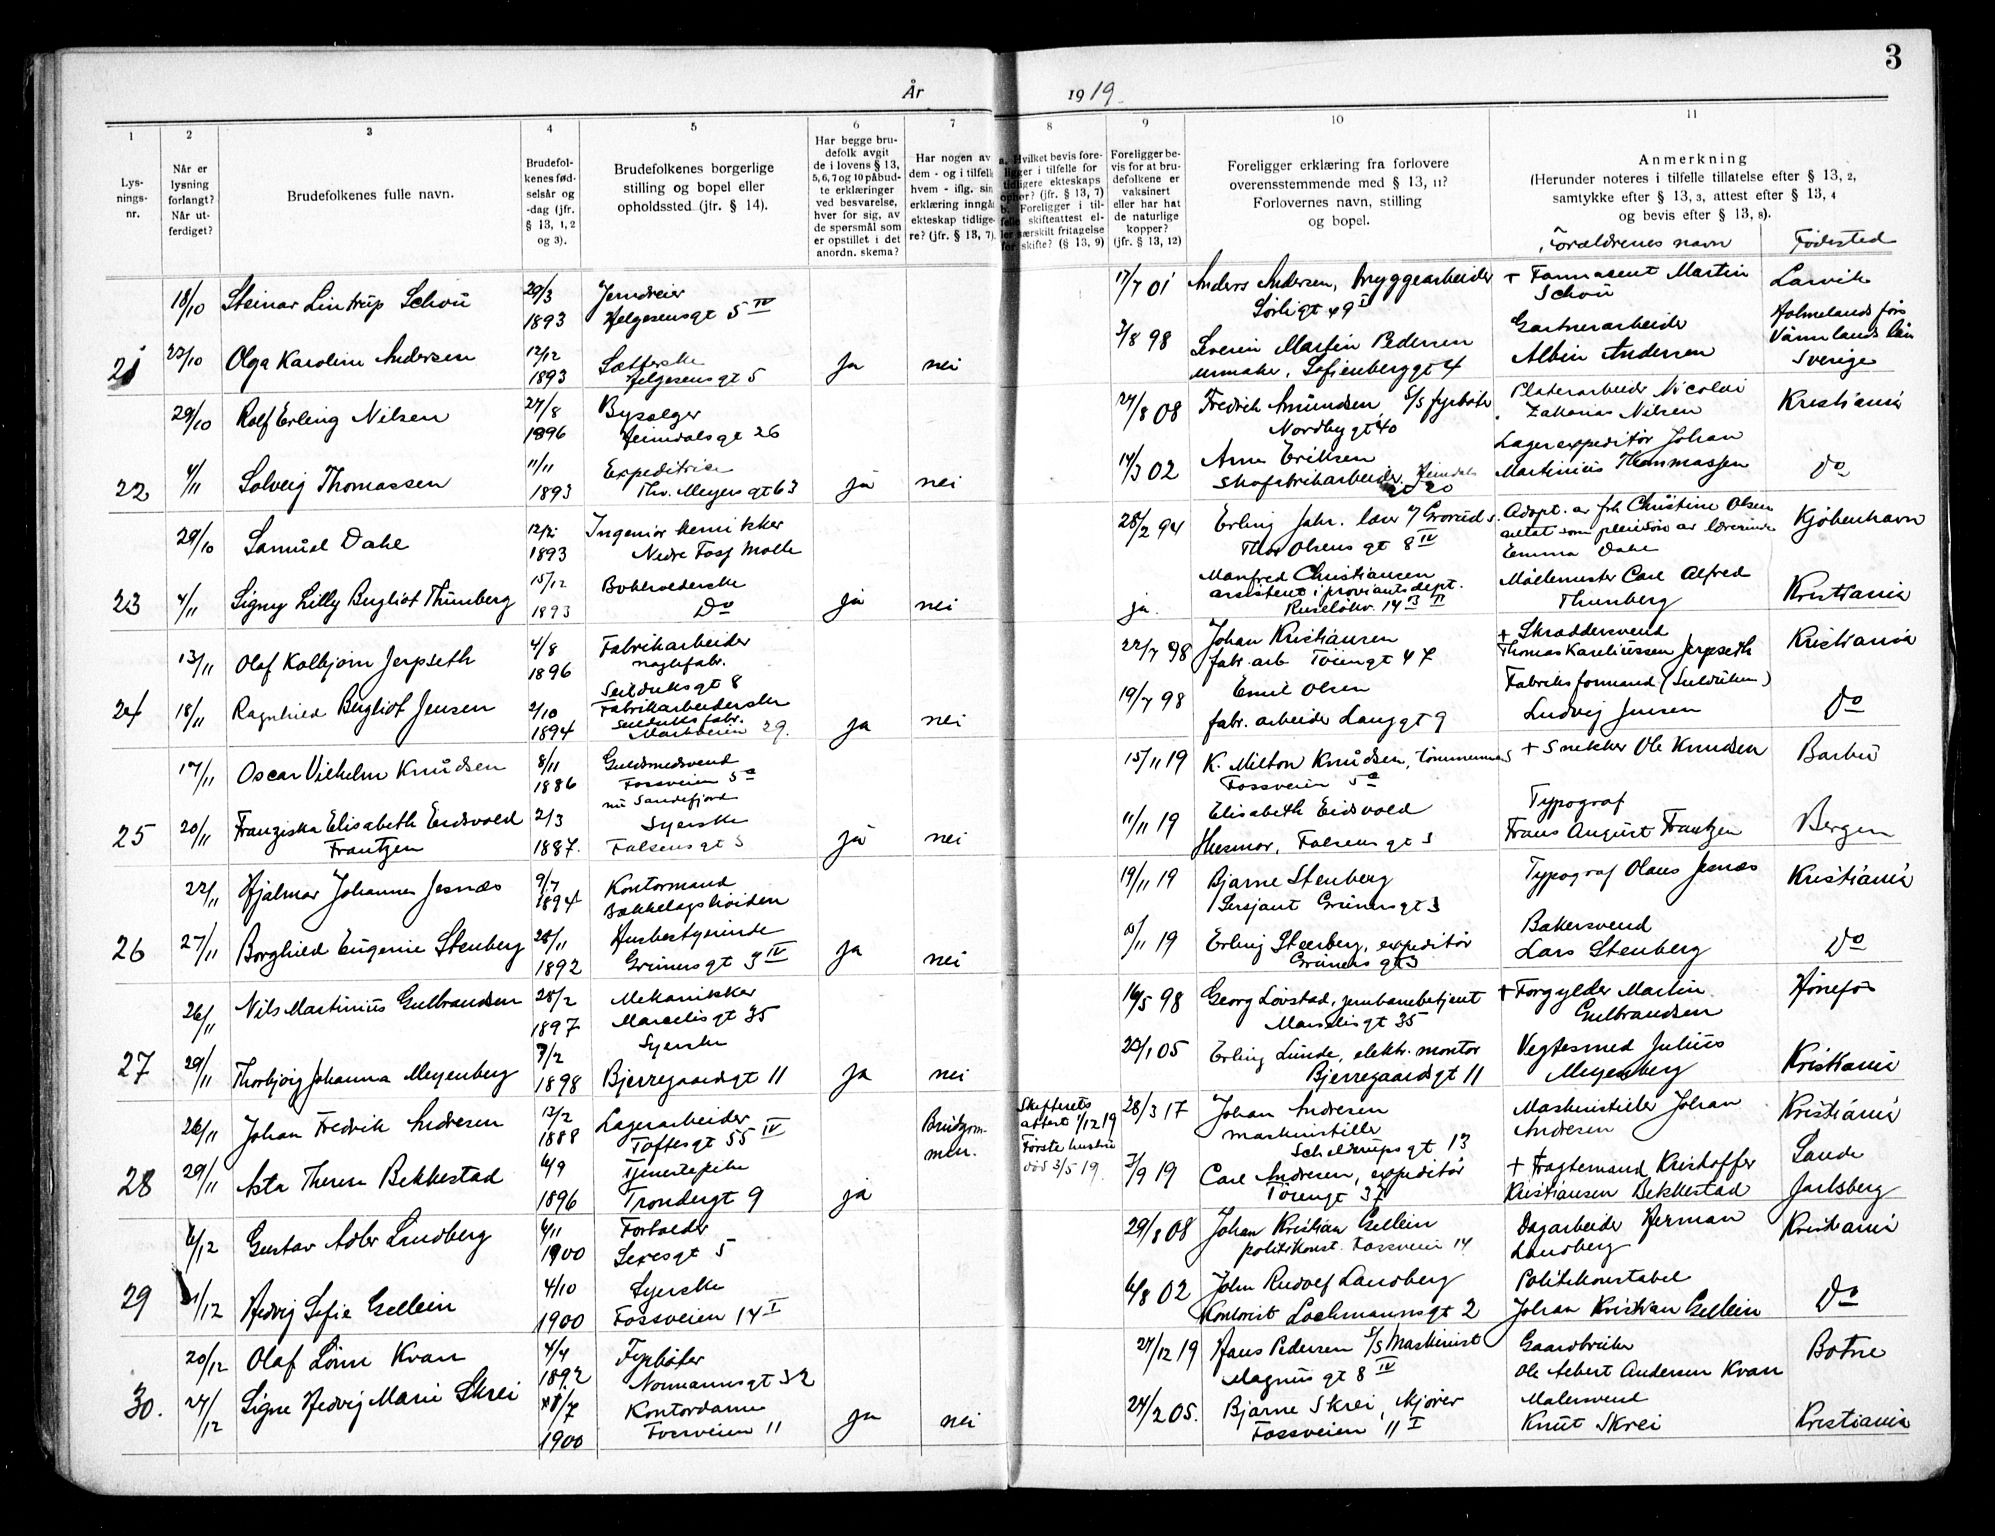 3
År 1919.
1 2 3 4 5 6 7 8 9 10 11
Lys-
nings-
nr.
Når er
lysning
forlangt?
Når ut-
ferdiget?
Brudefolkenes fulle navn.
Brudefol-
kenes fød-
selsår og
-dag (jfr.
§ 13, 1, 2
og 3).
Brudefolkenes borgerlige
stilling og bopel eller
opholdssted (jfr. § 14).
Har begge bru-
defolk avgit
de i lovens § 13,
5, 6, 7 og 10 påbud-
te erklæringer
ved besvarelse,
hver for sig, av
de spørsmål som
er opstillet i det
anordn. skema?
Har nogen av
dem - og i tilfelle
hvem - iflg. sin
erklæring inngå
ekteskap tidlige-
re? (jfr. § 13, 7).
a. Hvilket bevis fore-
ligger i tilfelle for
tidligere ekteskaps
ophør? (jfr. § 13, 7)
b. Foreligger i til-
felle skifteattest el-
ler særskilt fritagelse
for skifte? (§ 13, 9)
Foreligger be-
vis for at bru-
defolkene er
vaksinert
eller har hat
de naturlige
kopper?
(jfr. § 13, 12)
Foreligger erklæring fra forlovere
overensstemmende med § 13, 11?
Forlovernes navn, stilling
og bopel.
Anmerkning
(Herunder noteres i tilfelle tillatelse efter § 13, 2,
samtykke efter § 13, 3, attest efter § 13, 4
og bevis efter § 13, 8).
Forældrenes navn Fødested
18/10 Steinar Lintrup Schou 29/3 1893 Jerndreier
Helgesensgt 5 IV 17/7 01 Anders Andersen, bryggearbeider
Sørligt 49 I + Farmasent Martin
Schou Larvik
21 22/10 Olga Karoline Andersen 12/12 1893 Sætterske
Helgesensgt 5 Ja nei 2/8 98 Severin Martin Pedersen
urmaker, Sofienberggt 4 Gartnerarbeider
Albin Andersen Holmelands förs
Värmlands län
Sverige
29/10 Rolf Erling Nilsen 27/8 1896 Bysælger
Heimdalsgt 26 27/8 08 Fredrik Amundsen, S/S fyrbøter
Nordbygt 40 Platearbeider Nicolai
Zakarias Nilsen Kristiania
22 4/11 Solveig Thomassen 11/11 1893 Expeditrise
Thv. Meyersgt 63 ja nei 14/3 02 Arne Eriksen
Skofabrikarbeider, Heimdals
20 Lagerexpeditør Johan
Martinius Thommassen Do
29/10 Samuel Dahl 12/2 1893 Ingeniør kemikker
Nedre Foss Mølle 28/2 94 Erling Jahr. lær v/ Grorud s.
Thor Olsens gt 8 IV Adopt. av frk Christine Olsen
antat som pleiesøn av lærerinde
Emma Dahl Kjøbenhavn
23 4/11 Signy Lilly Bergliot Thunberg 15/12 1893 Bokholderske
Do ja nei ja. Manfred Christiansen
assistent i proviantsdept.
Ruseløkv. 14 B II Målemester Carl Alfred
Thunberg Kristiania
13/11 Olaf Kolbjørn Jerpseth 4/8 1896 Fabrikarbeider
naglefabr.
Seilduksgt 8 22/7 98 Johan Kristiansen
fabr. arb Tøiengt 47 + Skræddersvend
Thomas Kareliussen Jerpseth Kristiania
24 18/11 Ragnhild Bergliot Jensen 2/10 1894 Fabrikarbeiderske
Seilduksfabr.
Markveien 29. ja nei 19/7 98 Emil Olsen
fabr. arbeider Langgt 9 Fabriksformand (Seilduken)
Ludvig Jensen Do
17/11 Oscar Vilhelm Knudsen 8/11 1886 Guldsmedsvend
Fossveien 5a
nu Sandefjord 15/11 19 K. Milton Knudsen, tømmermand
Fossveien 5a + Snekker Ole Knudsen Barbu
25 20/11 Franziska Elisabeth Eidsvold
Frantzen 2/3 1887. Syerske
Falsensgt 3 ja nei 11/11 19 Elisabeth Eidsvold
Husmor, Falsensgt 3 Typograf
Frans August Frantzen Bergen
22/11 Hjalmar Johannes Jesnæs 9/7 1894 Kontormand
Bækkelagshøiden 19/11 19 Bjarne Stenberg
Sersjant Grünersgt 3 Typograf Olaus Jesnæs Kristiania
26 27/11 Borghild Eugenie Stenberg 28/11 1892 Husbestyrerinde
Grünersgt 3 IV ja nei 10/11 19 Erling Stenberg, expeditør
Grünersgt 3 Bakersvend
Lars Stenberg Do
26/11 Nils Martinius Gulbrandsen 28/2 1897 Mekanikker
Marcelisgt 35 16/5 98 Georg Løvstad, jernbanebetjent
Marselisgt 35 + Forgylder Martin
Gulbrandsen Hønefos
27 29/11 Thorbjørg Johanna Meyenberg 7/2 1898 Syerske
Bjerregaardsgt 11 Ja nei 23/1 05 Erling Lunde, elektr. montør
Bjerregaardsgt 11 Vegtesmed Julius
Meyenberg Kristiania
26/11 Johan Fredrik Andresen 12/2 1888 Lagerarbeider
Toftesgt 55 IV Brudgom-
men. Skifterets
attest 1/12 19
Første hustru
død 3/5 19. 28/3 17 Johan Andresen
maskinstiller
Scheldrupsgt 13 Maskinstiller Johan
Andresen Kristiania
28 29/11 Asta Therese Bekkestad 6/9 1896 Tjenestepike
Trondergt 9 ja 3/9 19 Carl Andresen, expeditør
Tøiengt 37 + Fragtemand Kristoffer
Kristiansen Bekkestad Sande
Jarlsberg
6/12 Gustav Adler Landberg 6/11 1900 Forholder
Sexesgt 5 29/8 08 Johan Kristian Gellein
politikonst. Fossveien 14 Dagarbeider Herman
Landberg Kristiania
29 21/12 Hedvig Sofie Gellein 4/10 1900 Syerske
Fossveien 14 I 6/8 02 John Rudolf Landberg
Kontorist Lochmannsgt 2 Politikonstabel
Johan Kristian Gellein Do
20/12 Olaf Lönn Kvan 4/4 1892 Fyrbøter
Normannsgt 32 27/12 19 Hans Pedersen S/S Maskinist
Magnusgt 8 IV Gaardbruker
Ole Albert Andersen Kvan Botne
30. 27/12 Signe Hedvig Marie Skrei 11/7 1900 Kontordame
Fossveien 11 ja nei 24/2 05. Bjarne Skrei, Kjører
Fossveien 11 I Malersvend
Knut Skrei Kristiania